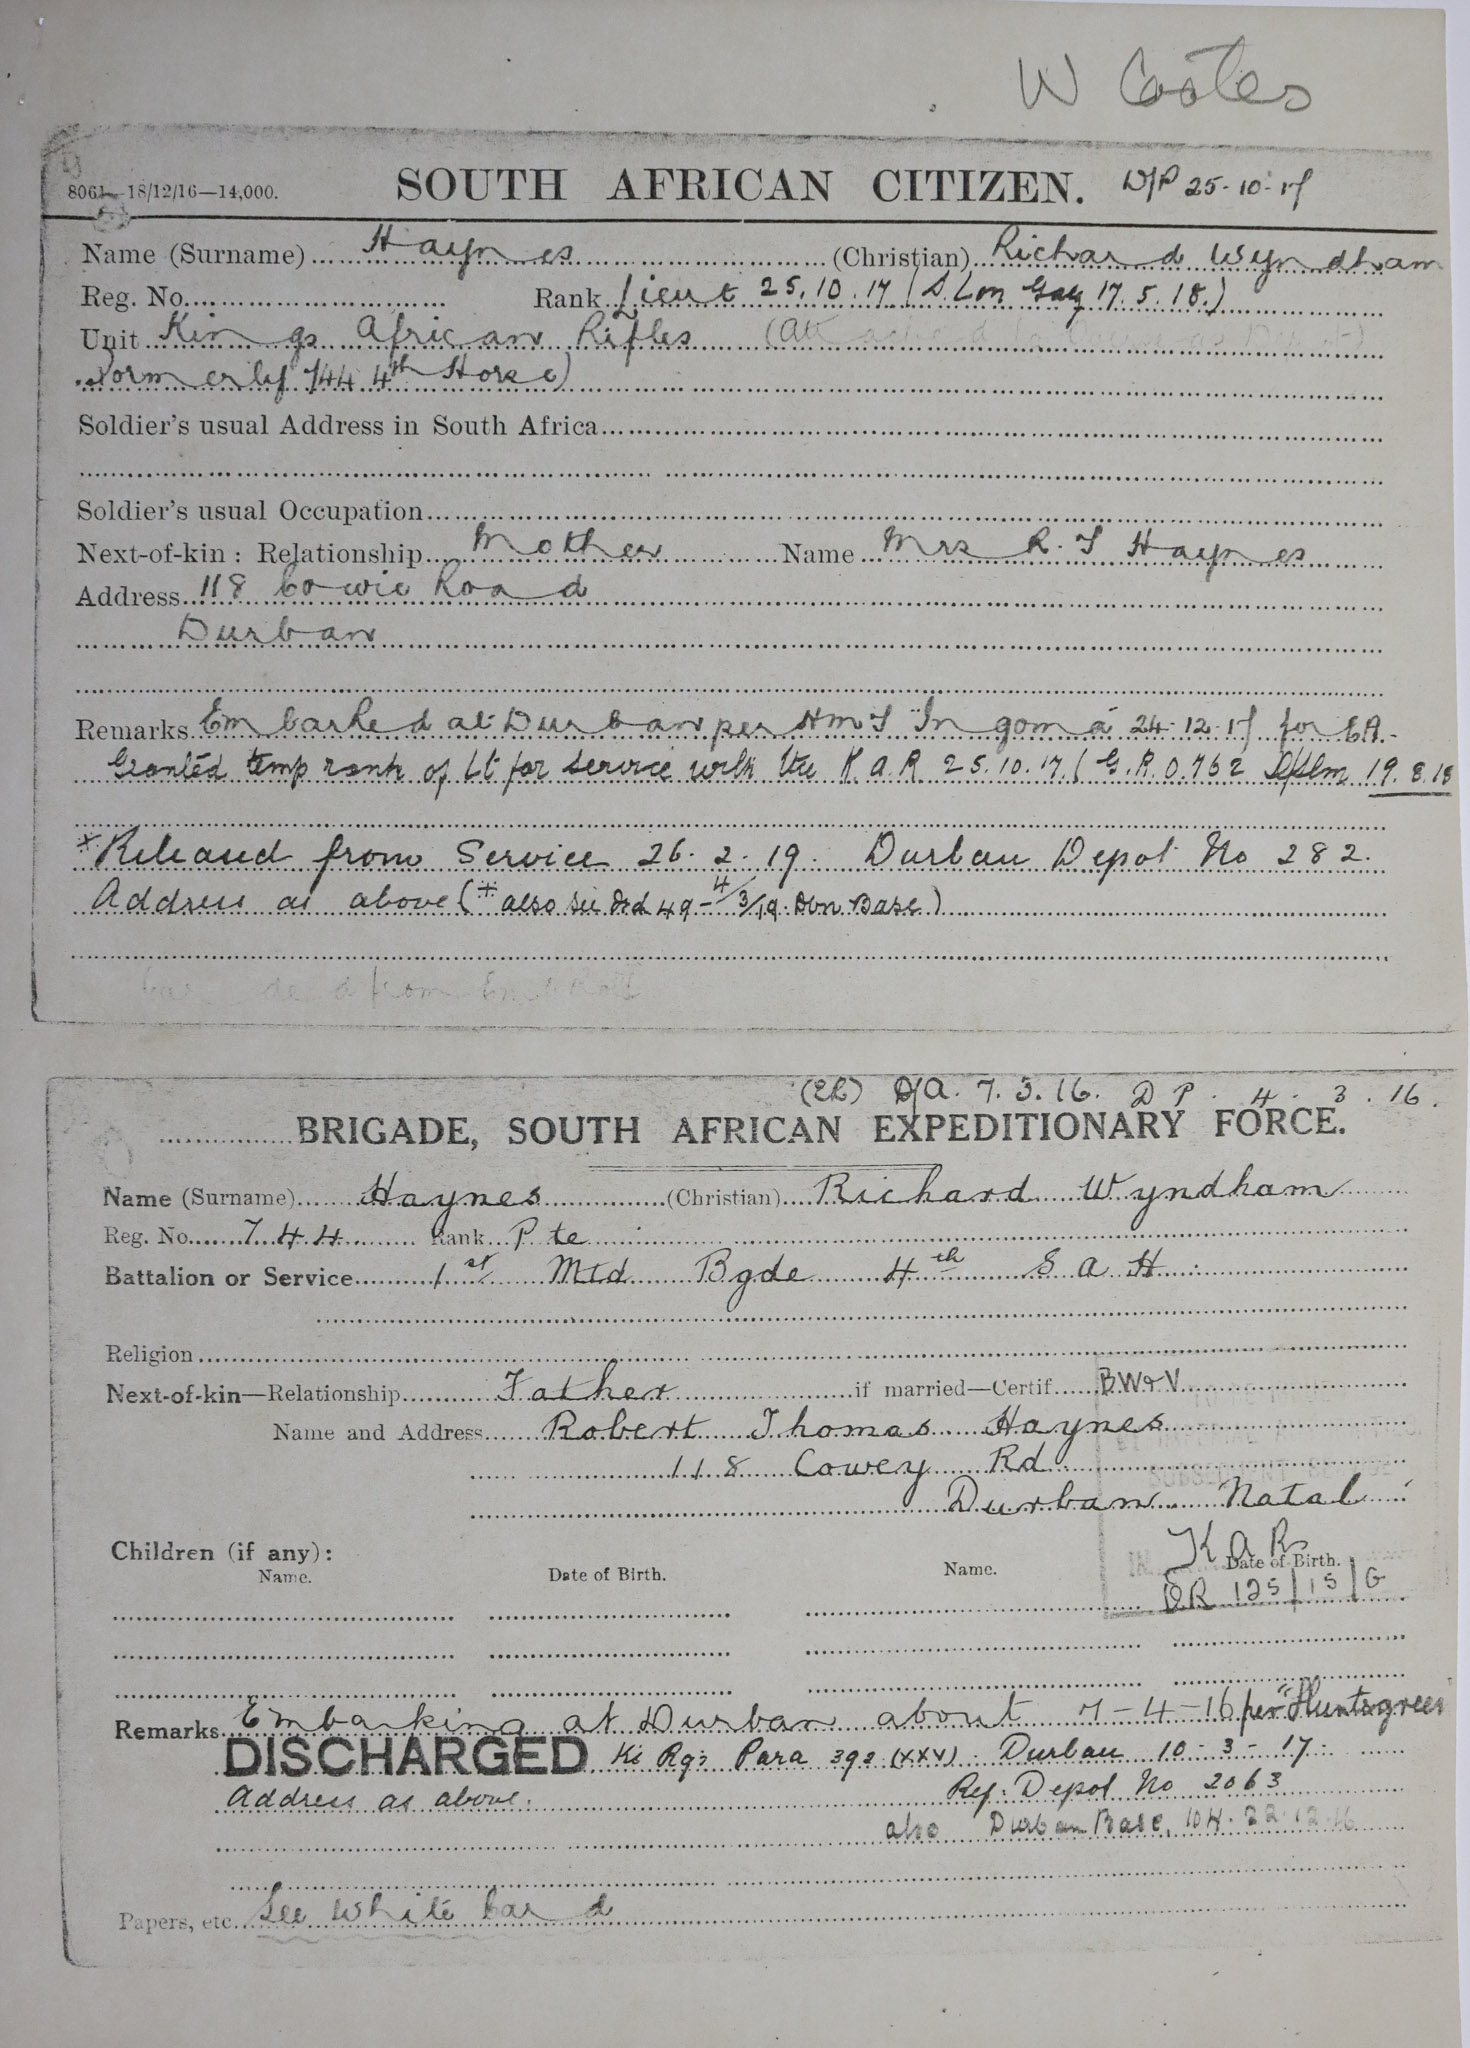 W Coates
8061—18/12/16—14,000.
SOUTH AFRICAN CITIZEN. D/P 25-10-17
Name (Surname) Haynes (Christian) Richard Wyndham
Reg. No. Rank Lieut 25.10.17 (S Lon Gaz 17.5.18.)
Unit Kings African Rifles (Attached
Formerly 744 4th Horse)
Soldier's usual Address in South Africa
Soldier's usual Occupation
Next-of-kin: Relationship Mother Name Mrs R. T Haynes
Address 118 Cowie Road
Durban
Remarks Embarked at Durban per HMT "Ingoma" 24-12-17 for EA.
Granted temp rank of Lt for service with the K.A.R 25.10.17 (G.R.O.762 19.8.18
*Released from Service 26.2.19. Durban Depot No 282.
Address as above (*also see 49-4/3/19. Dbn Base)
from
(ER) D/A. 7.3.16. D P. 4.3.16.
BRIGADE, SOUTH AFRICAN EXPEDITIONARY FORCE.
Name (Surname) Haynes (Christian) Richard Wyndham
Reg. No. 744 Rank Pte
Battalion or Service 1st Mtd Bgde 4th S A H.
Religion
Next-of-kin—Relationship Father if married—Certif. BW&V
Name and Address Robert Thomas Haynes
118 Cowey Rd
SUBSEQUENT
Durban Natal
Children (if any): K A Rs
Name. Date of Birth. Name. Date of Birth.
OR 125/15/G
Remarks Embarking at Durban about 7-4-16 per "Huntsgreen
DISCHARGED Ki Rgs Para 392 (XXV). Durban 10-3-17.
Address as above. Ref: Depot No 2063
also Durban Base, 104. 22.12.16
Papers, etc. See White Card